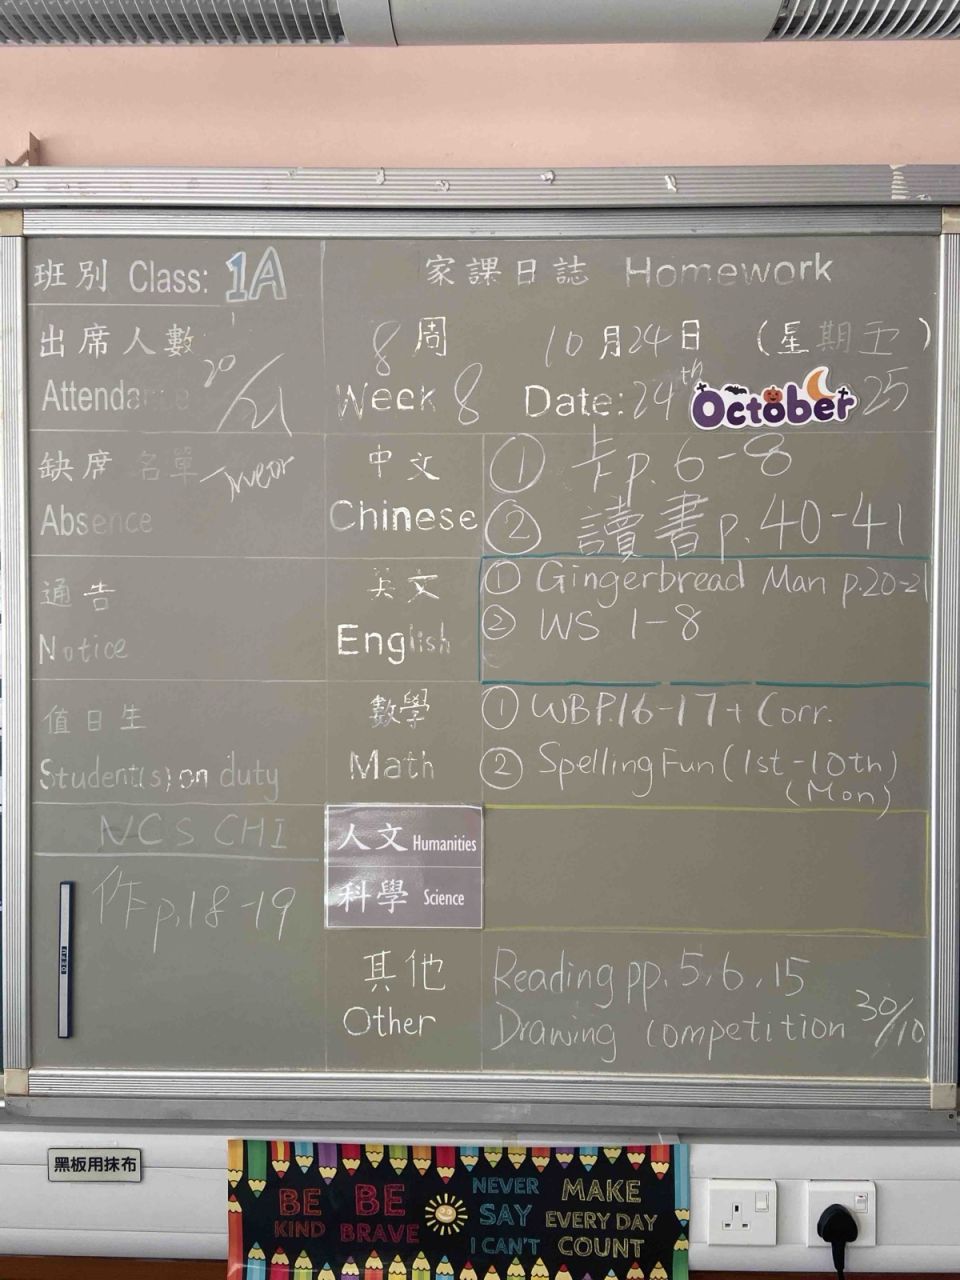 班別 Class: 1A
家課日誌 Homework
出席人數
Attendance 20/21
8周 10月24日 (星期五)
Week 8 Date: 24th October 25
缺席名單
Absence
中文
Chinese
① 卡p.6-8
② 讀書p.40-41
通告
Notice
英文
English
① Gingerbread Man p.20-21
② WS 1-8
值日生
Student(s) on duty
數學
Math
① WBP.16-17+Corr.
② Spelling Fun (1st-10th)
(Mon)
NCS CHI
作p.18-19
人文 Humanities
科學 Science
其他
Other
Reading pp.5,6,15
Drawing competition 30/10
黑板用抹布
BE KIND
BE BRAVE
NEVER SAY I CAN'T
MAKE EVERY DAY COUNT